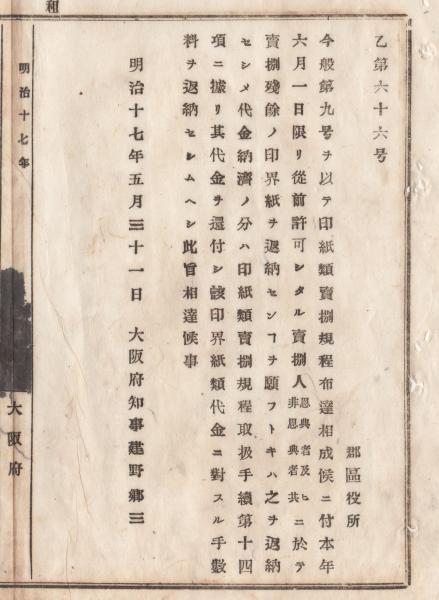 乙第六十六号
郡區役所
今般第九号ヲ以テ印紙類賣捌規程布達相成候ニ付本年
六月一日限リ從前許可シタル賣捌人恩典者及ヒ非恩典者共ニ於テ
賣捌殘餘ノ印界紙ヲ返納センヿヲ願フトキハ之ヲ返納
セシメ代金納濟ノ分ハ印紙類賣捌規程取扱手續第十四
項ニ據リ其代金ヲ還付シ該印界紙類代金ニ對スル手數
料ヲ返納セシムヘシ此旨相達候事
明治十七年五月三十一日 大阪府知事建野郷三
明治十七年
大阪府